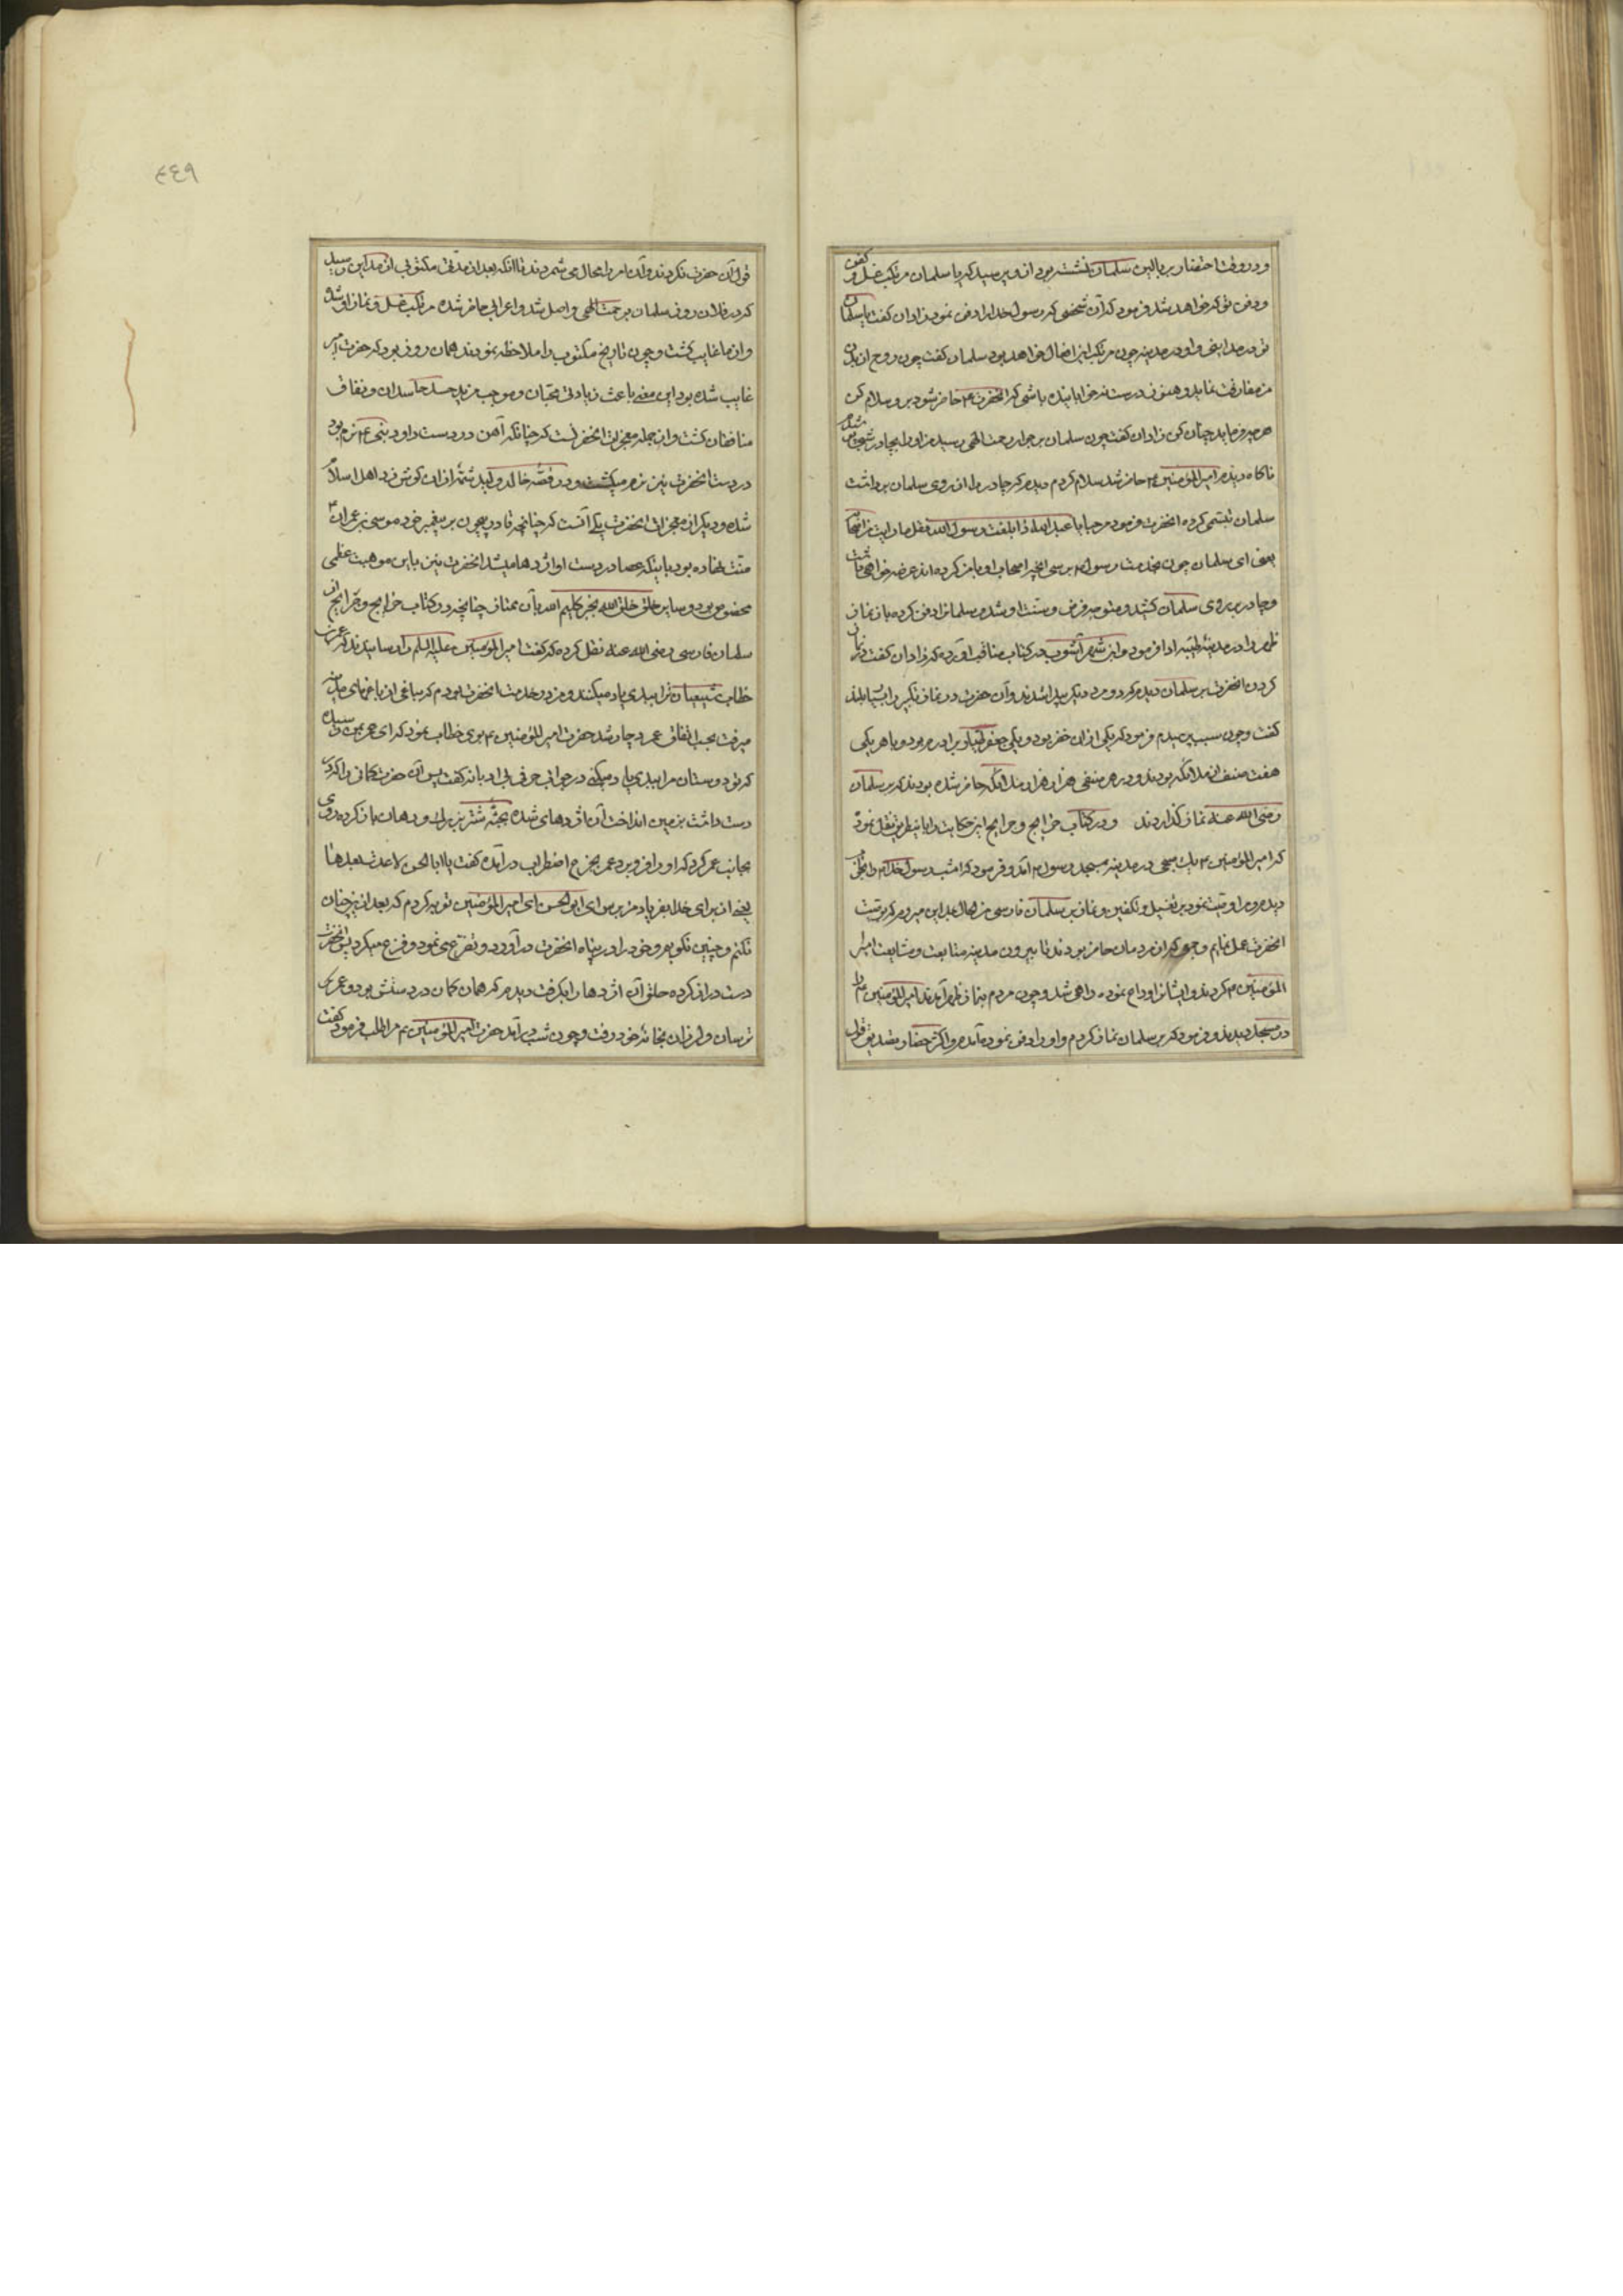 و در وقت احتضار بر بالین سلمان نشسته بود از و پرسید که یا سلمان مرتکب غسل و کفن
و دفن تو که خواهد شد فرمود که آن شخصی که رسول خدا را دفن نمود زادان گفت یا سلمان
تو در مداینی و او در مدینه چون مرتکب این افعال خواهد بود سلمان گفت چون روح از بدن
من مفارقت نماید و هنوز درست نه خوابانیده باشی که آنحضرت ع حاضر شود برو سلام کن
هر چه فرماید چنان کن زادان گفت چون سلمان بر جوار رحمت الهی رسید من او را بچادر شب
ناگاه دیدم امیرالمؤمنین ع حاضر شد سلام کردم دیدم که چادر را از روی سلمان برداشت
سلمان تبسمی کرده آنحضرت فرمود مرحبا یا عبد الله اذا بلغت رسول الله فقل ما رایت من اصحابه
یعنی ای سلمان چون بخدمت رسول م برسی آنچه اصحاب او با من کرده‌اند عرضه خواهی داشت
و چادر بر روی سلمان کشید و متوجه فرض و سنت او شد و سلمانرا دفن کرده باز نماز
ظهر را در مدینه طیبه ادا فرمود و ابن شهر آشوب در کتاب مناقب آورده که زادان گفت در نماز
کردن آنحضرت بر سلمان دیدم که دو مرد دیگر پیدا شدند و آن حضرت در نماز تکبیر را بسیار بلند
گفت و چون سبب پرسیدم فرمود که یکی از آن خضر بود و یکی جعفر طیار برادرم بود و با هر یکی
هفت صنف از ملائکه بودند و در هر صنفی هزار هزار ملائکه حاضر شده بودند که بر سلمان
رضی الله عنه نماز گذاردند و در کتاب خرایج و جرایح این حکایت را باینطریق نقل نموده
که امیر المؤمنین ع یک صبحی در مدینه بمسجد رسول م آمد و فرمود که امشب رسول خدا م را بخواب
دیدم و مرا وصیت نمود بر تغسیل و تکفین و نماز بر سلمان فارسی من الحال بمداین میروم که بوصیت
آنحضرت عمل نمایم و جمعی که از مردمان حاضر بودند تا بیرون مدینه متابعت و مشایعت امیر
المؤمنین ع کردند و ایشانرا وداع نموده راهی شد و چون مردم بنماز ظهر آمدند امیر المؤمنین ع را
در مسجد دیدند و فرمود که بر سلمان نماز کردم و او را دفن نموده آمدم و اکثر حضار تصدیق قول
٤٤٩
قول آن حضرت نکردند و آن امر را محال می شمردند تا آنکه بعد از مدتی مکتوبی از مداین رسید
که در فلان روز سلمان برحمت الهی واصل شد و اعرابی حاضر شده مرتکب غسل و نماز او شد
و از ما غایب گشت و چون تاریخ مکتوب را ملاحظه نمودند همان روز بود که حضرت امیر
غایب شده بود این معنی باعث زیادتی محبان و موجب مزید حسد حاسدان و نفاق
منافقان گشت و از جمله معجزات آنحضرت آنست که چنانکه آهن در دست داود نبی ع نرم بود
در دست آنحضرت نیز نرم میگشت و در قصه خالد ولید شمه از آن گوش زد اهل اسلام
شده و دیگر از معجزات آنحضرت یکی آنست که چنانچه قادر بیچون بر پیغمبر خود موسی بن عمران ع
منت نهاده بود باینکه عصا در دست او اژدها میشد آنحضرت نیز باین موهبت عظمی
مخصوص بود و سایر خلق خلق الله بجز کلیم الله بآن ممتاز چنانچه در کتاب خرایج و جرایح از
سلمان فارسی رضی الله عنه نقل کرده که گفت امیر المؤمنین علیه السلم را رسانیدند که عمر بن
خطاب شیعیان ترا ببدی یاد میکند و من در خدمت آنحضرت بودم که بباغی از باغهای مدینه
میرفت بحسب اتفاق عمر دچار شد حضرت امیر المؤمنین ع بوی خطاب نمود که ای عمر بمن رسیده
که تو دوستان مرا ببدی یاد میکنی در جواب حرفی بی ادبانه گفت پس آن حضرت کمانی را که در
دست داشت بزمین انداخت آن اژدهای شده بجثه شتر بزرگ و دهان باز کرده روی
بجانب عمر کرد که او را فرو برد عمر بجزع و اضطراب در آمده گفت یا ابا الحسن لا عدت بعدها
یعنی از برای خدا بفریاد من برس ای ابو الحسن ای امیر المؤمنین توبه کردم که بعد ازین چنان
نکنم و چنین نگویم و خود را در پناه آنحضرت در آورد و تضرع می نمود و فزع میکرد پس آنحضرت
دست دراز کرده حلق آن اژدها را بگرفت دیدم که همان کمان در دستش بود و عمر
ترسان و لرزان بخانه خود رفت و چون شب در آمد حضرت امیر المؤمنین ع مرا طلب فرمود گفت